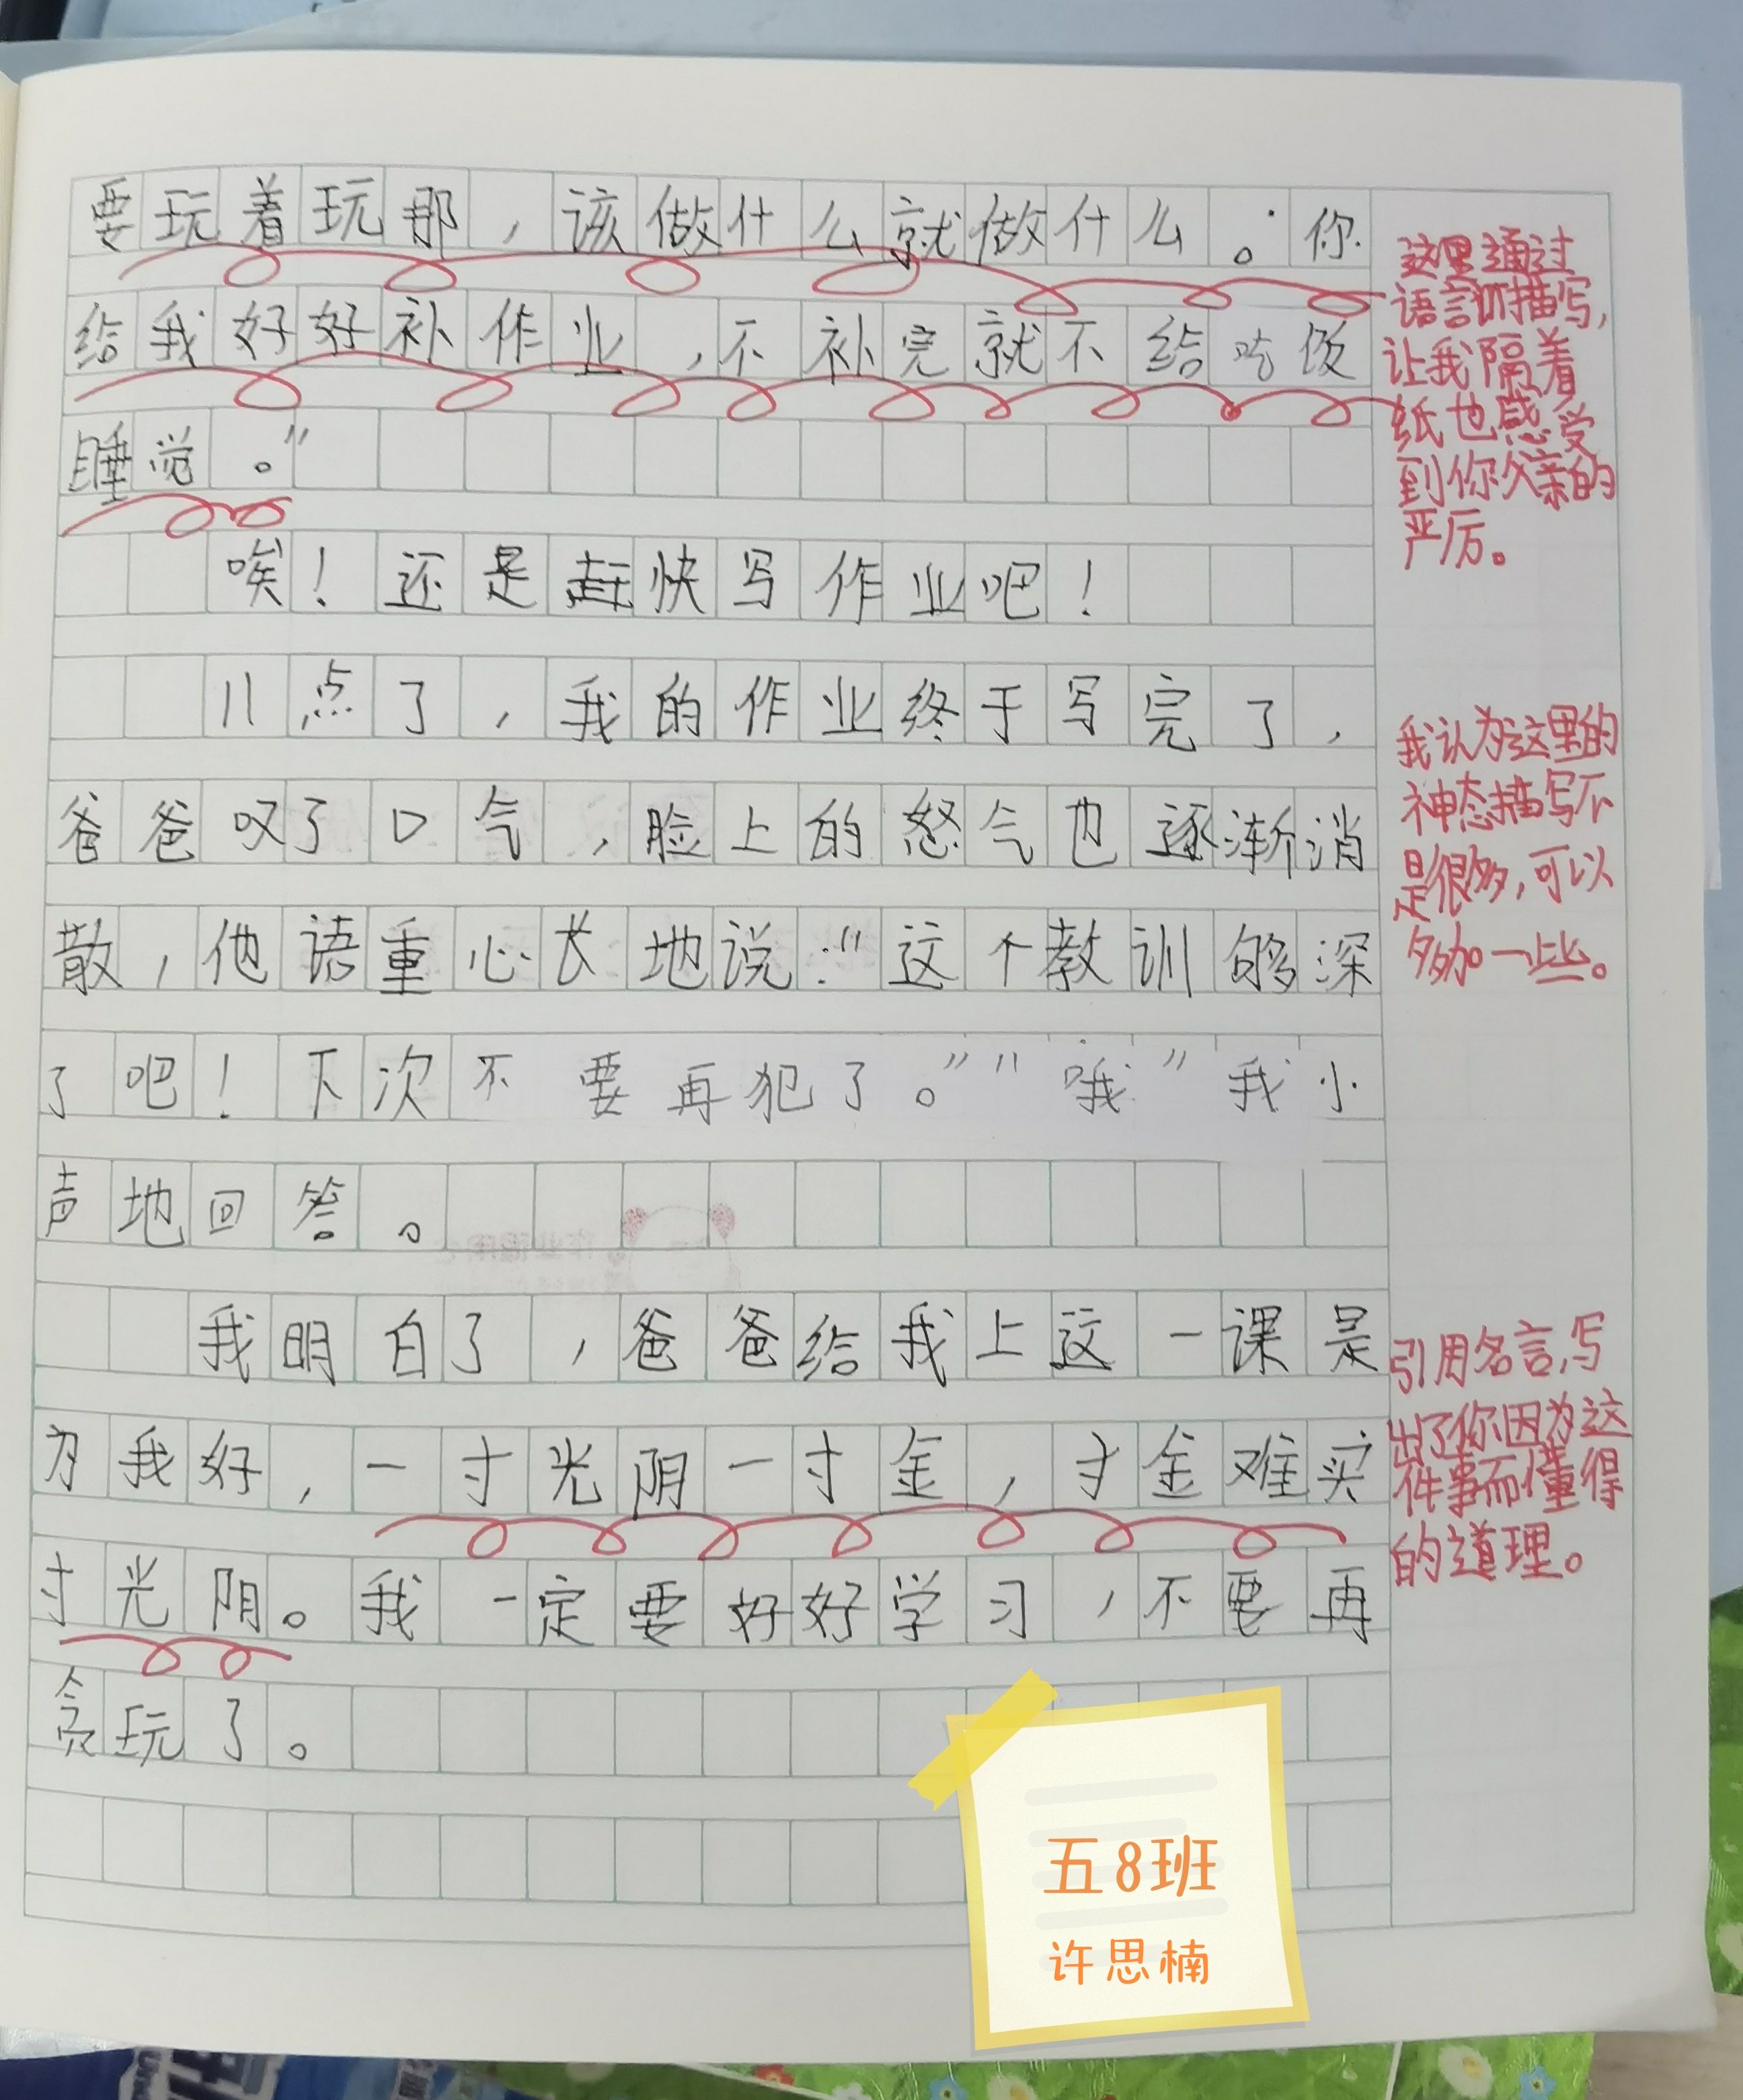 要玩着玩那，该做什么就做什么。你
给我好好补作业，不补完就不给吃饭
睡觉。”
唉！还是赶快写作业吧！
儿点了，我的作业终于写完了，
爸爸叹了口气，脸上的怒气也逐渐消
散，他语重心长地说：“这个教训够深
了吧！下次不要再犯了。”“哦”我小
声地回答。
我明白了，爸爸给我上这一课是
为我好，一寸光阴一寸金，寸金难买
寸光阴。我一定要好好学习，不要再
贪玩了。
这里通过
语言的描写，
让我隔着
纸也感受
到你父亲的
严厉。
我认为这里的
神态描写不
是很多，可以
多加一些。
引用名言，写
出了你因为这
件事而懂得
的道理。
五8班
许思楠